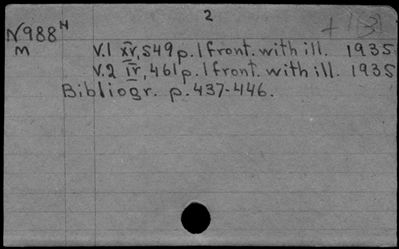 2
N988 H
M
V.1 XV, 549 p. 1 front. with ill. 1935
V.2 IV, 461 p. 1 front. with ill. 1935
Bibliogr. p. 437-446.